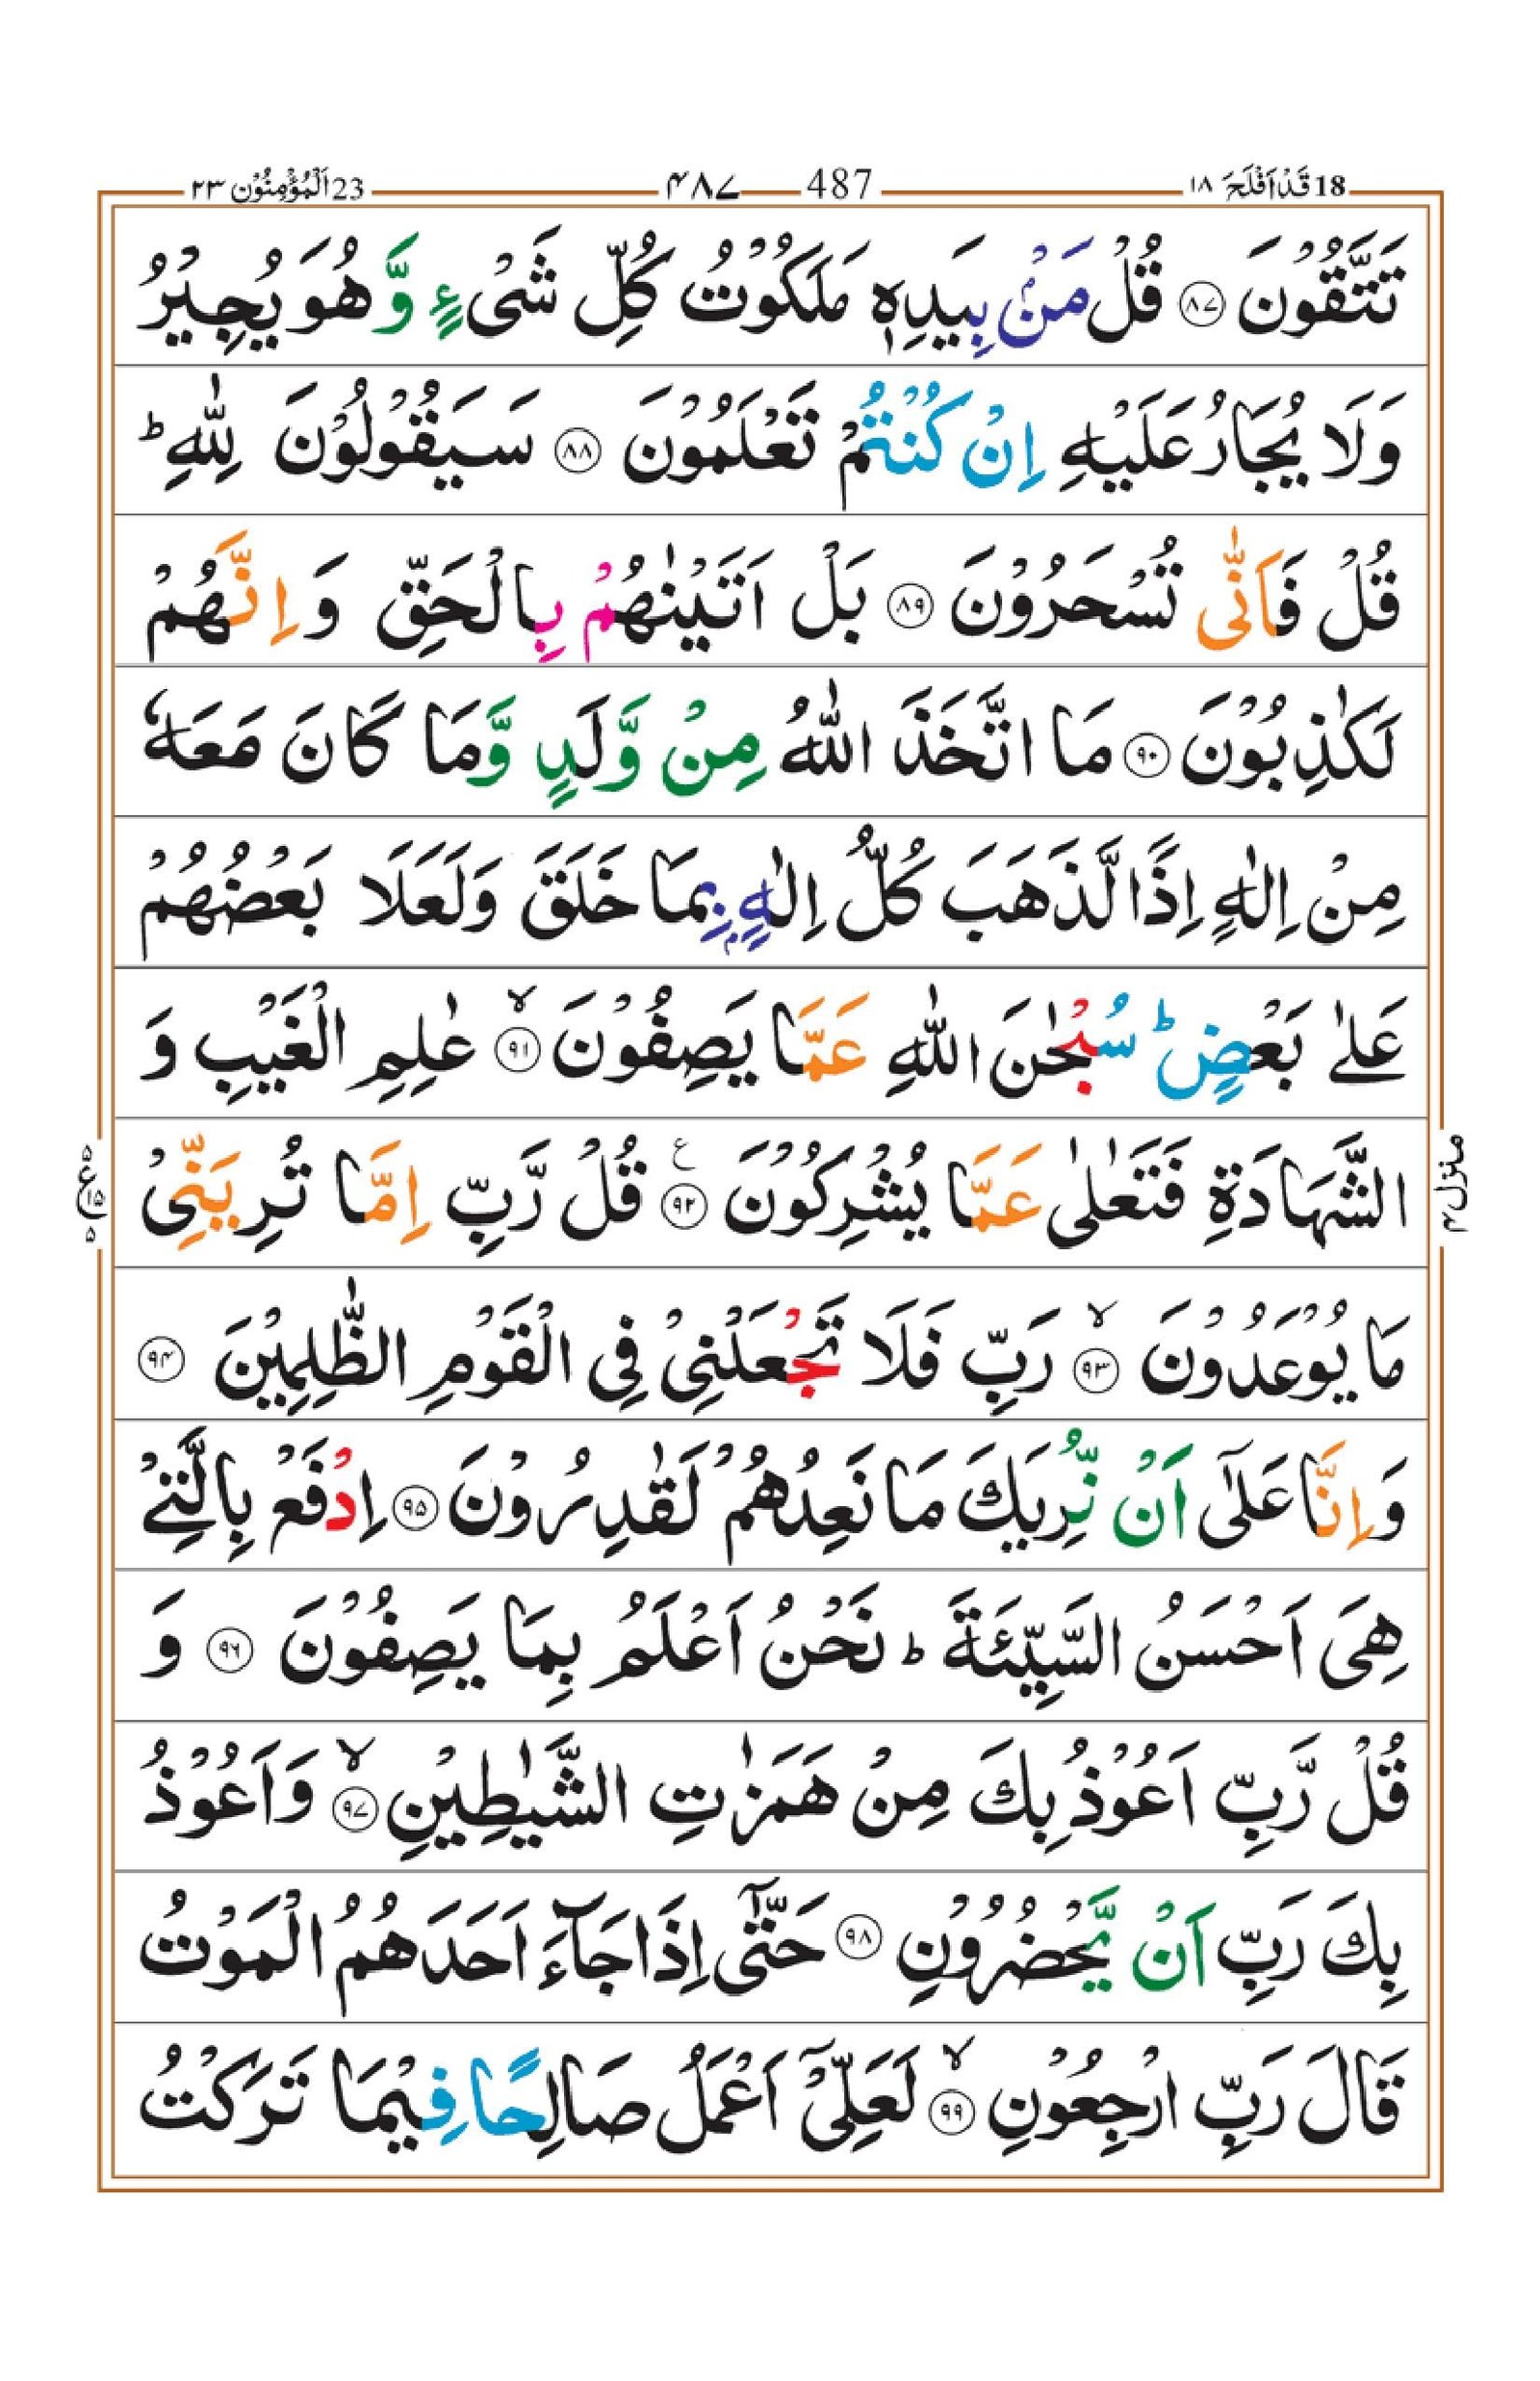 18 قَدْ اَفْلَحَ ١٨ 487 ۴۸۷ 23 اَلْمُؤْمِنُوْن ٢٣
تَتَّقُوْنَ ۝۸۷ قُلْ مَنْۢ بِيَدِهٖ مَلَكُوْتُ كُلِّ شَیْءٍ وَّ هُوَ يُجِيْرُ
وَلَا يُجَارُ عَلَيْهِ اِنْ كُنْتُمْ تَعْلَمُوْنَ ۝۸۸ سَيَقُوْلُوْنَ لِلّٰهِ ؕ
قُلْ فَاَنّٰى تُسْحَرُوْنَ ۝۸۹ بَلْ اَتَيْنٰهُمْ بِالْحَقِّ وَ اِنَّهُمْ
لَكٰذِبُوْنَ ۝۹۰ مَا اتَّخَذَ اللّٰهُ مِنْ وَّلَدٍ وَّمَا كَانَ مَعَهٗ
مِنْ اِلٰهٍ اِذًا لَّذَهَبَ كُلُّ اِلٰهٍۭ بِمَا خَلَقَ وَلَعَلَا بَعْضُهُمْ
عَلٰى بَعْضٍ ؕ سُبْحٰنَ اللّٰهِ عَمَّا يَصِفُوْنَ ۙ۝۹۱ عٰلِمِ الْغَيْبِ وَ
الشَّهَادَةِ فَتَعٰلٰى عَمَّا يُشْرِكُوْنَ ۝۹۲ ع قُلْ رَّبِّ اِمَّا تُرِيَنِّیْ
مَا يُوْعَدُوْنَ ۙ۝۹۳ رَبِّ فَلَا تَجْعَلْنِیْ فِی الْقَوْمِ الظّٰلِمِيْنَ ۝۹۴
وَ اِنَّا عَلٰٓى اَنْ نُّرِيَكَ مَا نَعِدُهُمْ لَقٰدِرُوْنَ ۝۹۵ اِدْفَعْ بِالَّتِیْ
هِیَ اَحْسَنُ السَّيِّئَةَ ؕ نَحْنُ اَعْلَمُ بِمَا يَصِفُوْنَ ۝۹۶ وَ
قُلْ رَّبِّ اَعُوْذُ بِكَ مِنْ هَمَزٰتِ الشَّيٰطِيْنِ ۙ۝۹۷ وَ اَعُوْذُ
بِكَ رَبِّ اَنْ يَّحْضُرُوْنِ ۝۹۸ حَتّٰٓى اِذَا جَآءَ اَحَدَهُمُ الْمَوْتُ
قَالَ رَبِّ ارْجِعُوْنِ ۙ۝۹۹ لَعَلِّیْۤ اَعْمَلُ صَالِحًا فِيْمَا تَرَكْتُ
منزل ۴
۵ ع ۱۵ ۵